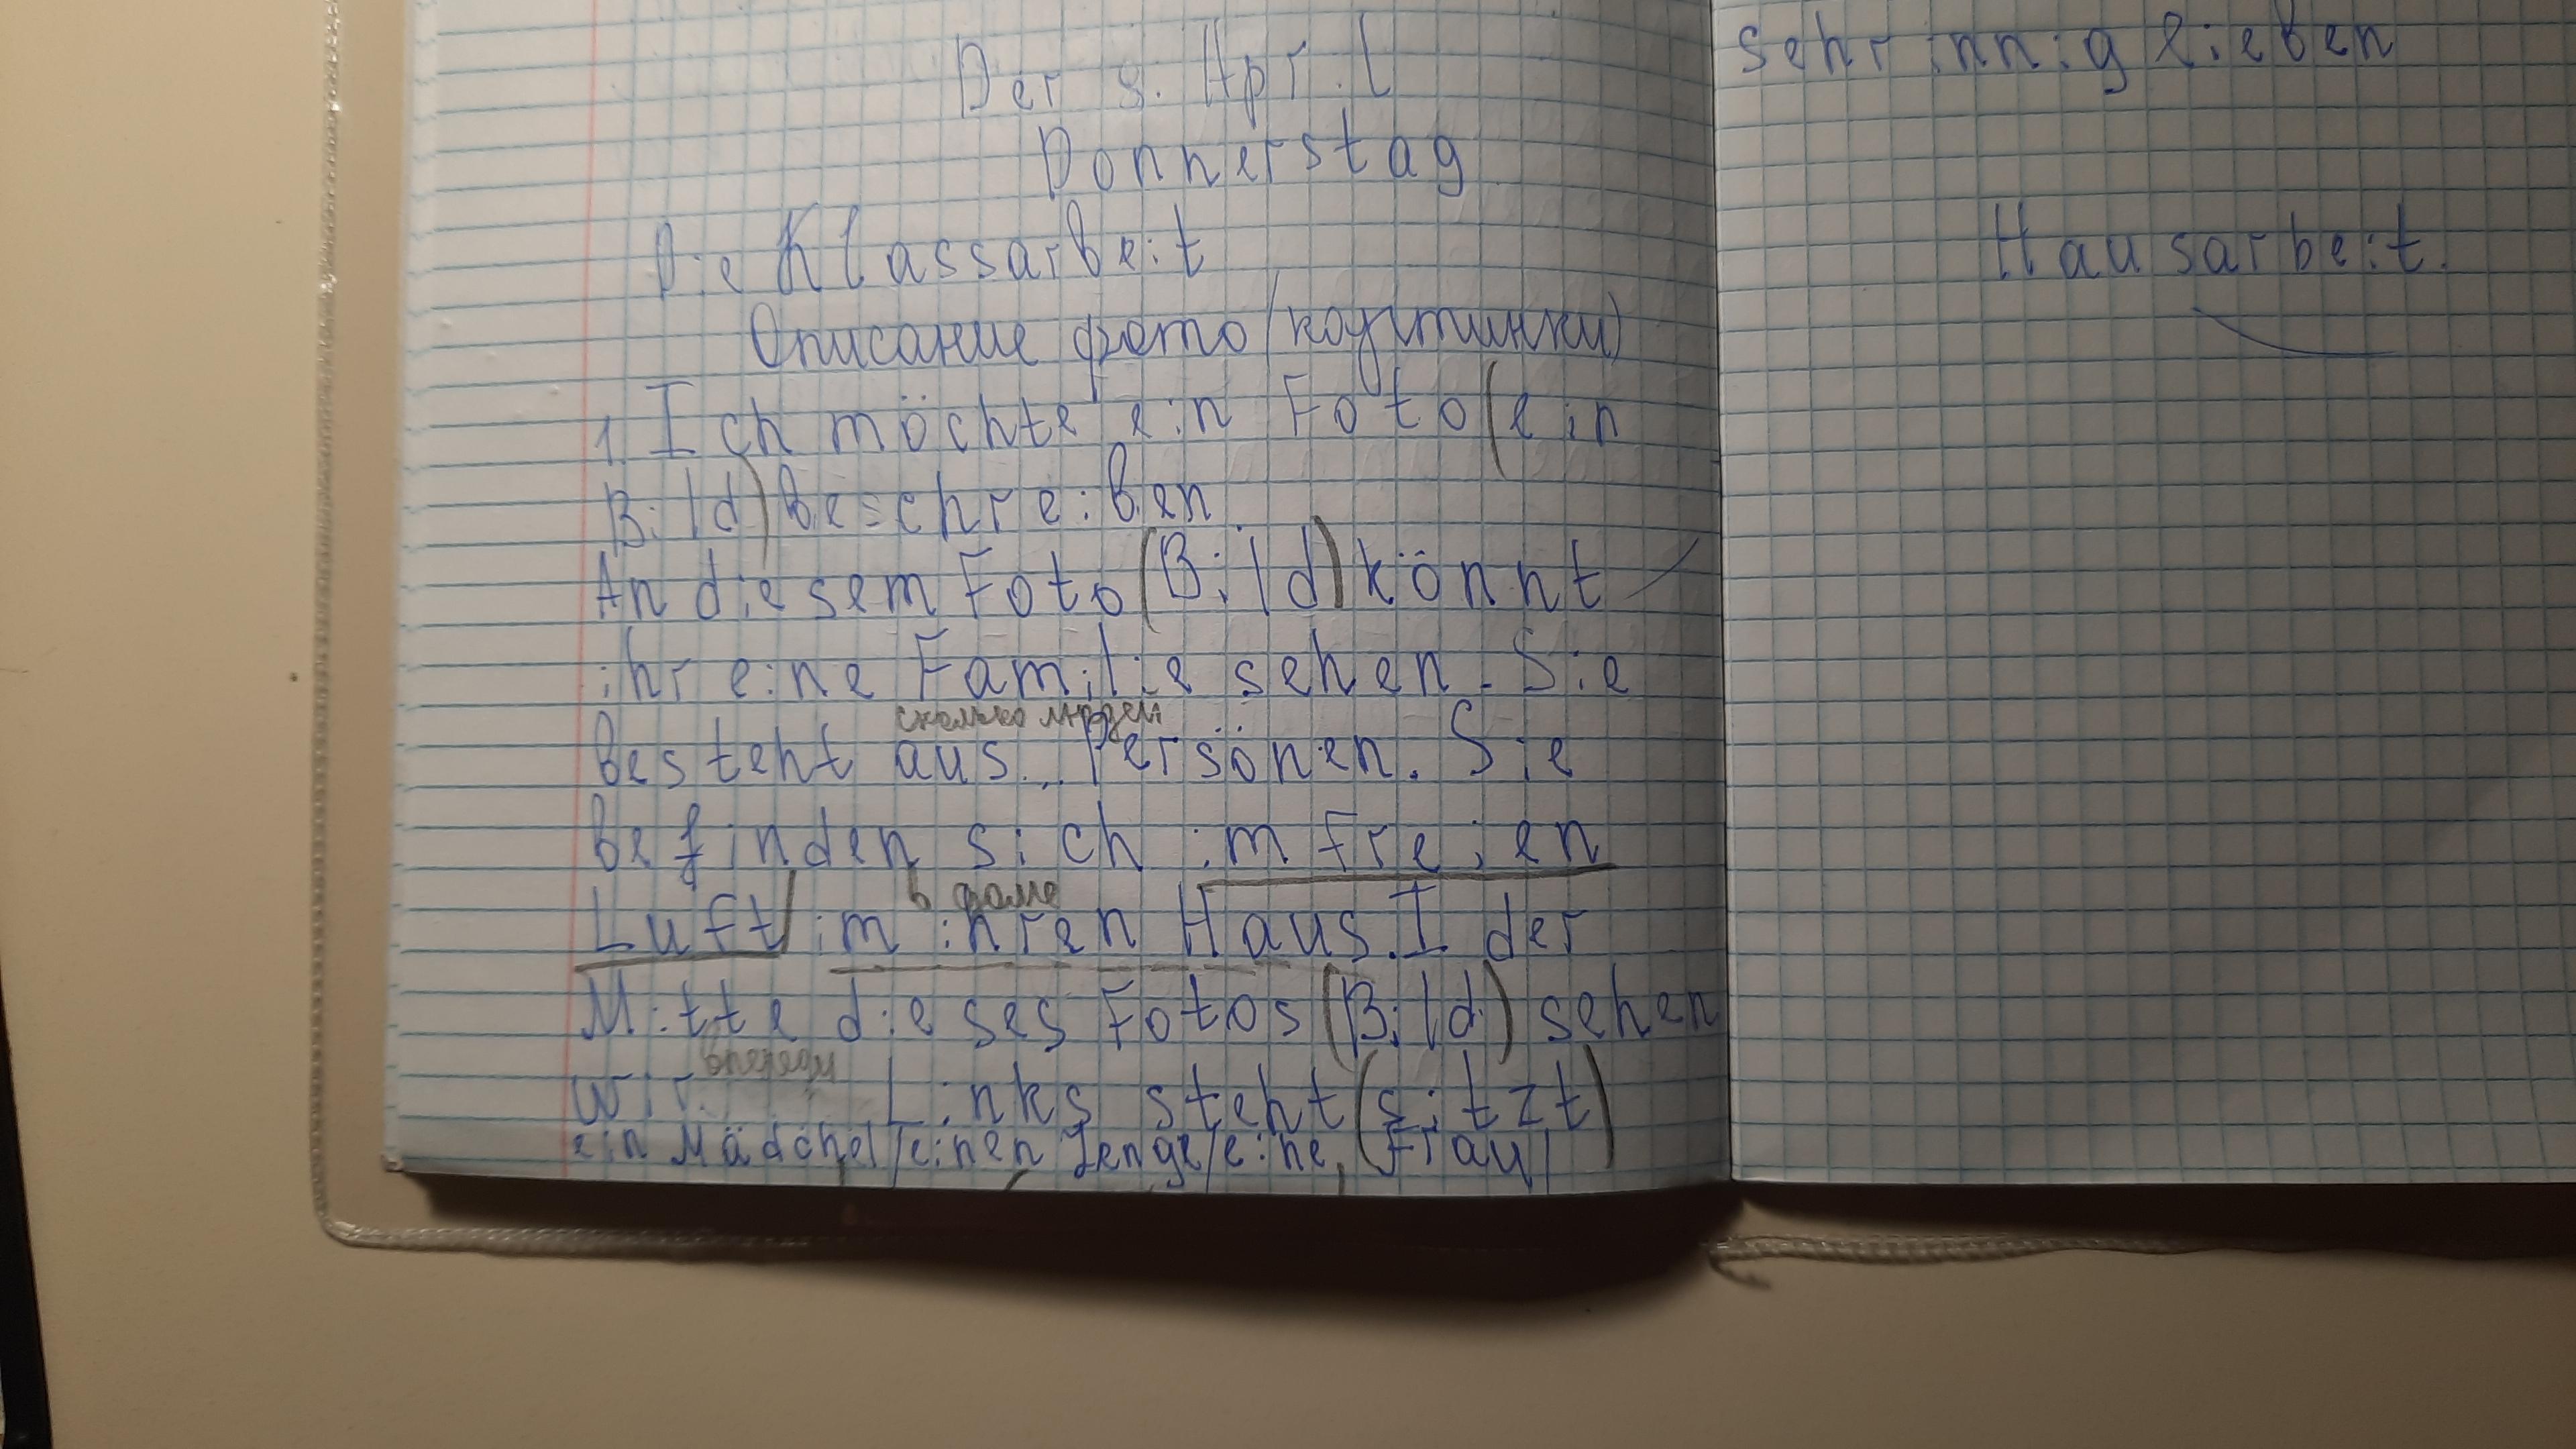 Der 8. April
Donnerstag
Die Klassarbeit
Описание фото (картинки)
1. Ich möchte ein Foto (ein
Bild) beschreiben.
An diesem Foto (Bild) könnt
ihr eine Familie sehen. Sie
сколько людей
besteht aus... Persönen. Sie
befinden sich im freien
в доме
Luft/im ihren Haus. I der
Mitte dieses Fotos (Bild) sehen
впереди
wir... Links steht (sitzt)
ein Mädchel/einen Jenge/eine, (Frau/
sehr innig lieben
Hausarbeit.